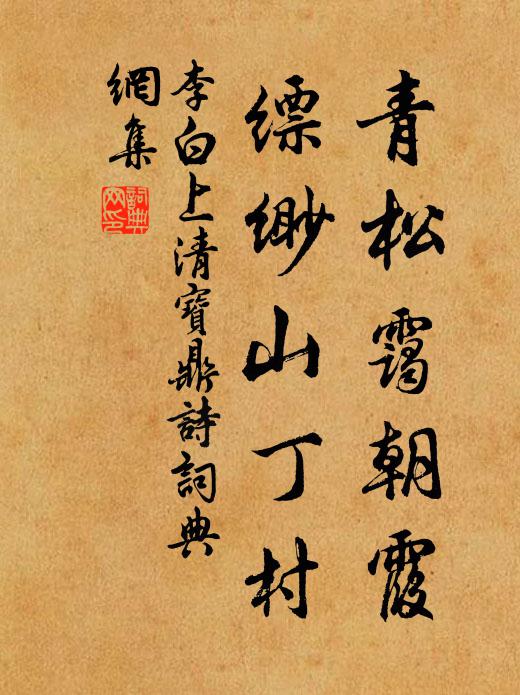 青松靄朝霞
缥缈山丁村
李白上清寶鼎詩詞典
網集
詞典
网印